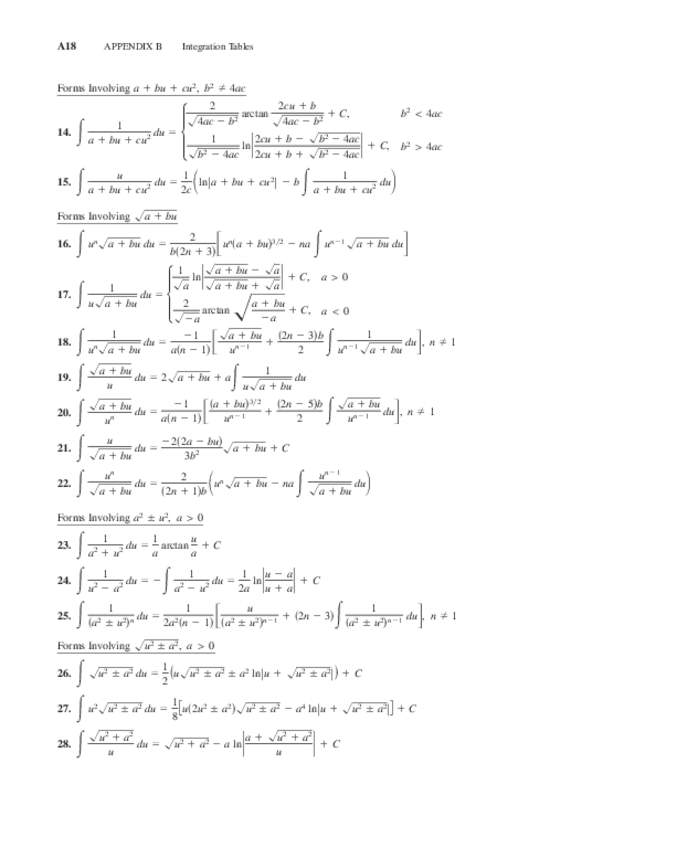 A18 APPENDIX B Integration Tables
Forms Involving a + bu + cu², b² ≠ 4ac
14. ∫ 1/(a + bu + cu²) du = { 2/√(4ac − b²) arctan (2cu + b)/√(4ac − b²) + C, b² < 4ac
1/√(b² − 4ac) ln |(2cu + b − √(b² − 4ac))/(2cu + b + √(b² − 4ac))| + C, b² > 4ac
15. ∫ u/(a + bu + cu²) du = 1/(2c) (ln|a + bu + cu²| − b ∫ 1/(a + bu + cu²) du)
Forms Involving √(a + bu)
16. ∫ uⁿ√(a + bu) du = 2/(b(2n + 3)) [uⁿ(a + bu)^(3/2) − na ∫ uⁿ⁻¹√(a + bu) du]
17. ∫ 1/(u√(a + bu)) du = { 1/√a ln |(√(a + bu) − √a)/(√(a + bu) + √a)| + C, a > 0
2/√(−a) arctan √((a + bu)/(−a)) + C, a < 0
18. ∫ 1/(uⁿ√(a + bu)) du = −1/(a(n − 1)) [√(a + bu)/uⁿ⁻¹ + (2n − 3)b/2 ∫ 1/(uⁿ⁻¹√(a + bu)) du], n ≠ 1
19. ∫ √(a + bu)/u du = 2√(a + bu) + a ∫ 1/(u√(a + bu)) du
20. ∫ √(a + bu)/uⁿ du = −1/(a(n − 1)) [(a + bu)^(3/2)/uⁿ⁻¹ + (2n − 5)b/2 ∫ √(a + bu)/uⁿ⁻¹ du], n ≠ 1
21. ∫ u/√(a + bu) du = −2(2a − bu)/(3b²) √(a + bu) + C
22. ∫ uⁿ/√(a + bu) du = 2/((2n + 1)b) (uⁿ√(a + bu) − na ∫ uⁿ⁻¹/√(a + bu) du)
Forms Involving a² ± u², a > 0
23. ∫ 1/(a² + u²) du = 1/a arctan u/a + C
24. ∫ 1/(u² − a²) du = −∫ 1/(a² − u²) du = 1/(2a) ln |(u − a)/(u + a)| + C
25. ∫ 1/(a² ± u²)ⁿ du = 1/(2a²(n − 1)) [u/(a² ± u²)ⁿ⁻¹ + (2n − 3) ∫ 1/(a² ± u²)ⁿ⁻¹ du], n ≠ 1
Forms Involving √(u² ± a²), a > 0
26. ∫ √(u² ± a²) du = 1/2 (u√(u² ± a²) ± a² ln|u + √(u² ± a²)|) + C
27. ∫ u²√(u² ± a²) du = 1/8 [u(2u² ± a²)√(u² ± a²) − a⁴ ln|u + √(u² ± a²)|] + C
28. ∫ √(u² + a²)/u du = √(u² + a²) − a ln |(a + √(u² + a²))/u| + C